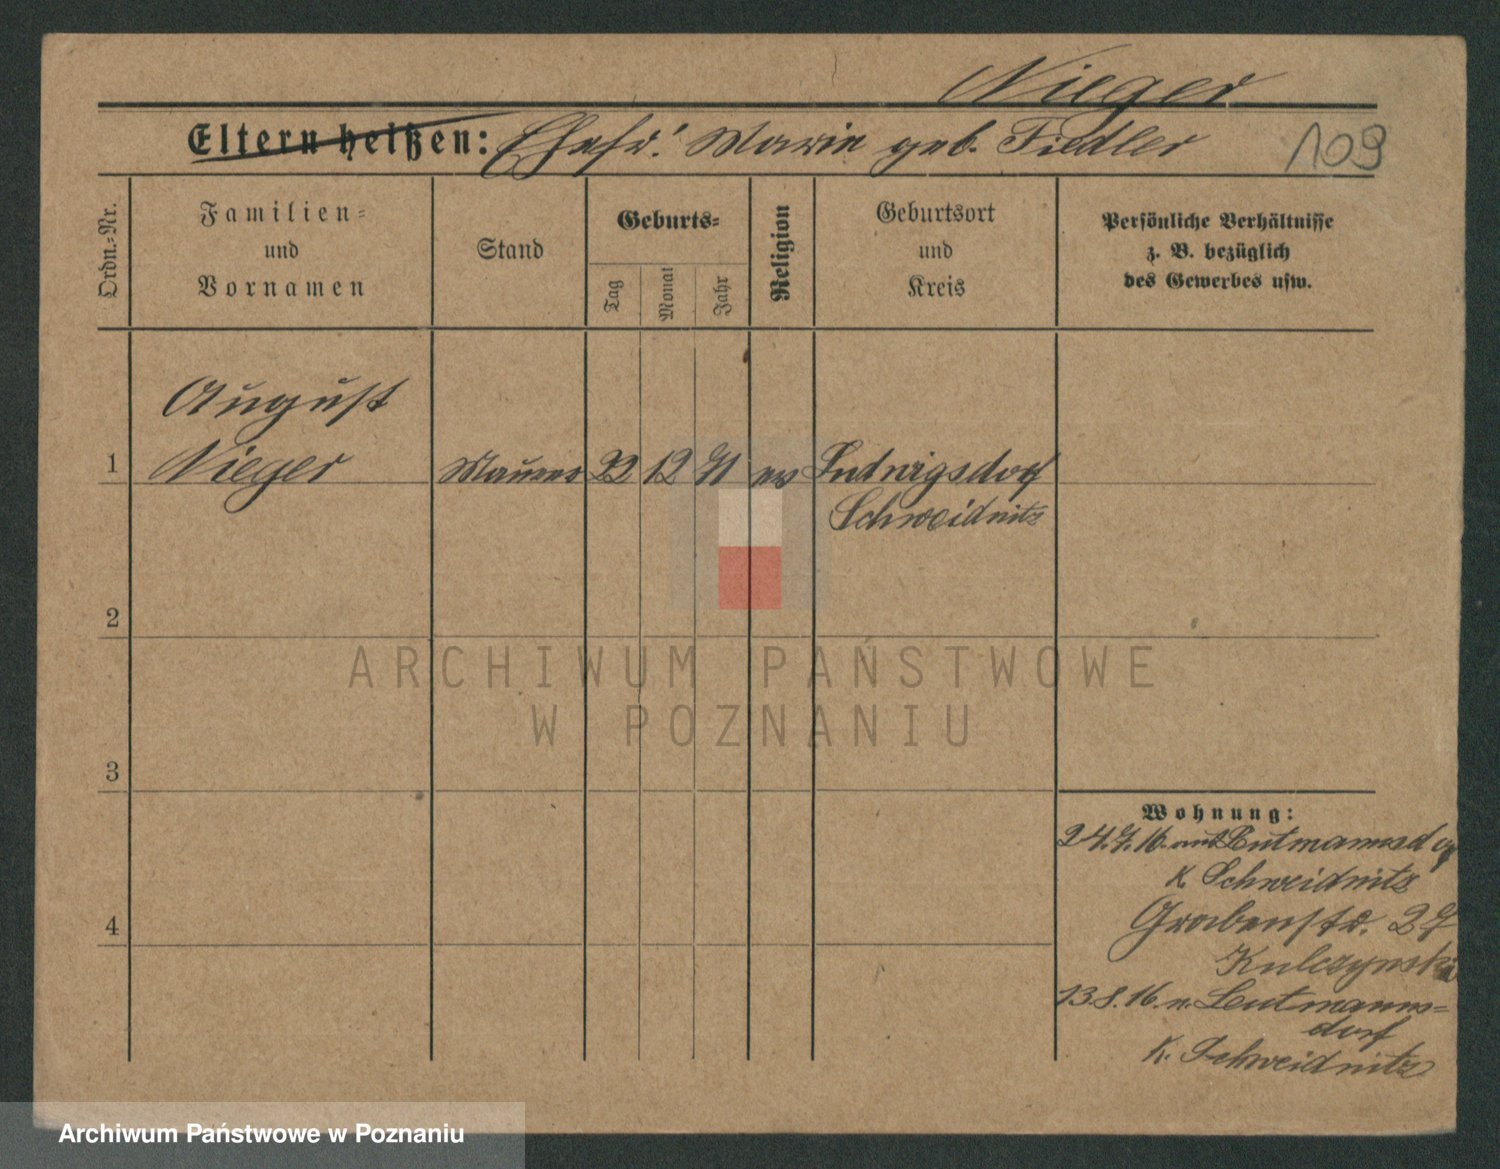 Nieger
Eltern heißen: Ehefr. Marie geb. Fiedler
109
Ordn.-Nr.
Familien-
und
Vornamen
Stand
Geburts-
Tag
Monat
Jahr
Religion
Geburtsort
und
Kreis
Persönliche Verhältnisse
z. B. bezüglich
des Gewerbes usw.
August
1 Nieger Maurer 22 12 71 ev Ludwigsdorf
Schweidnitz
2
ARCHIWUM PAŃSTWOWE
W POZNANIU
3
Wohnung:
24.7.16. aus Leutmannsdorf
K. Schweidnitz
Grabenstr. 27
4
Kulczynski
13.8.16. n. Leutmanns-
dorf
K. Schweidnitz
Archiwum Państwowe w Poznaniu